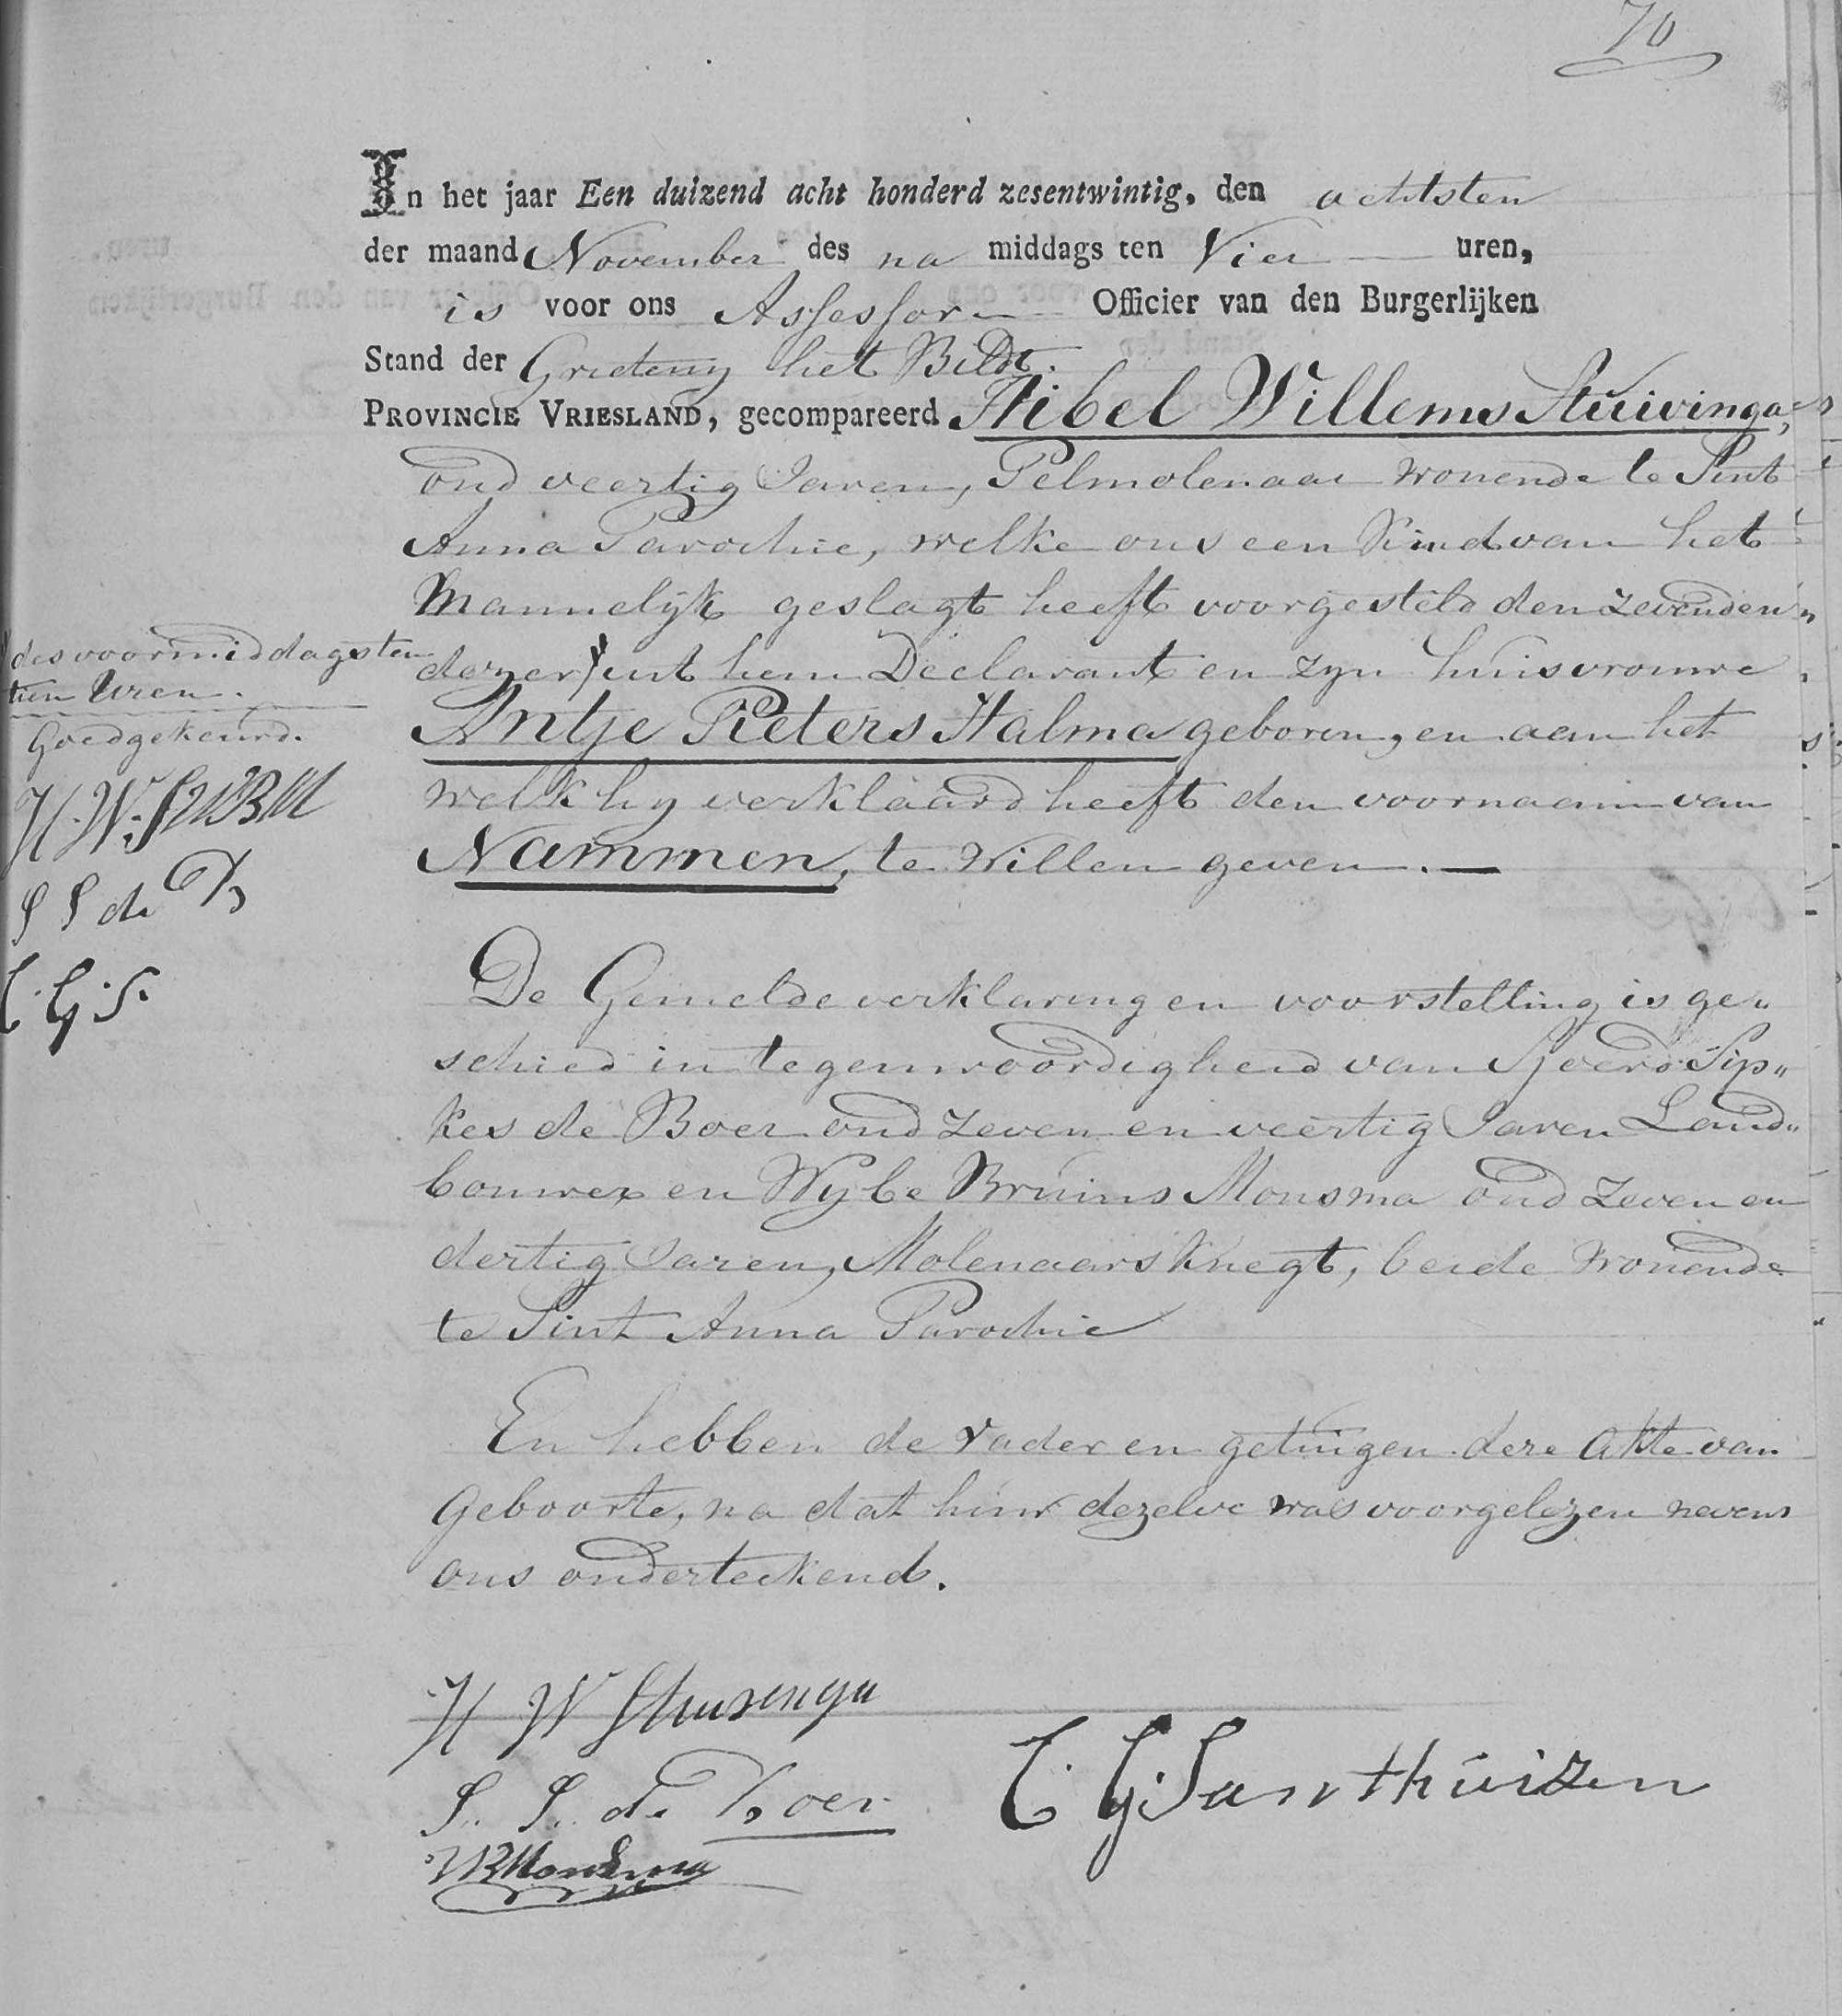 70
In het jaar Een duizend acht honderd zesentwintig, den achtsten
der maand November des na middags ten Vier uren,
is voor ons Assessor Officier van den Burgerlijken
Stand der Grieteny het Bildt.
PROVINCIE VRIESLAND, gecompareerd Hibel Willems Stuivinga,
oud veertig Jaren, Pelmolenaar wonende te Sint
Anna Parochie, welke ons een Kind van het
Mannelijk geslagt heeft voorgesteld den zevenden
dezer uit hem Declarant en zyn huisvrouwe
Antje Pieters Halma geboren, en aan het
welk hy verklaard heeft den voornaam van
Nammen, te willen geven.
des voormiddags ten
tien Uren.
Goedgekeurd.
H. W. S WBM
S S de B
C. G. S.
De Gemelde verklaring en voorstelling is ge„
schied in tegenwoordigheid van Sjoerd Sip„
kes de Boer oud zeven en veertig Jaren Land„
bouwer en Wybe Bruins Monsma oud zeven en
dertig Jaren, Molenaars Knegt, beide wonende
te Sint Anna Parochie
En hebben de vader en getuigen deze Akte van
Geboorte, na dat hun dezelve was voorgelezen nevens
ons onderteekend.
H W Stuivenga
S. S. de Boer
C. G. Santhuizen
WBMonsma